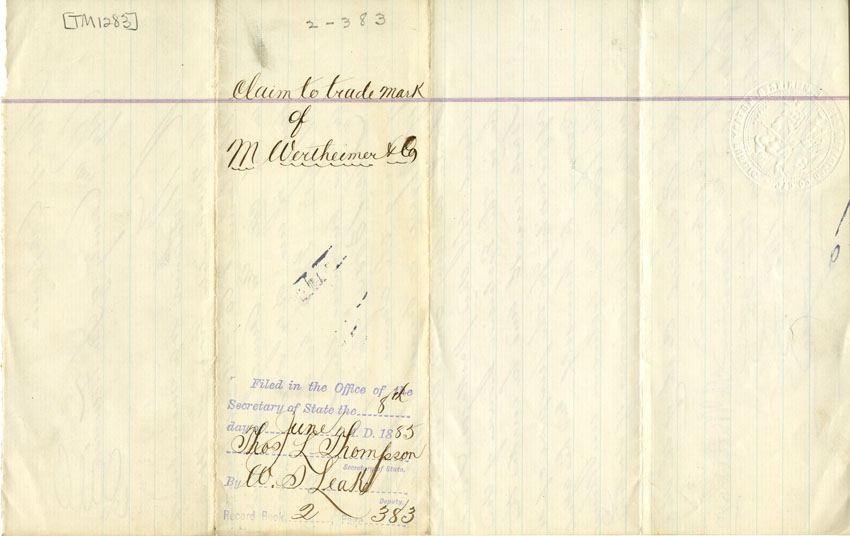 [TM1283]
2-383
Claim to trade mark
of
M Wertheimer & Co
Filed in the Office of the
Secretary of State the 8th
day of June A. D. 1885
Thos L Thompson
Secretary of State.
By W. S Leake
Deputy.
Record Book 2, Page 383